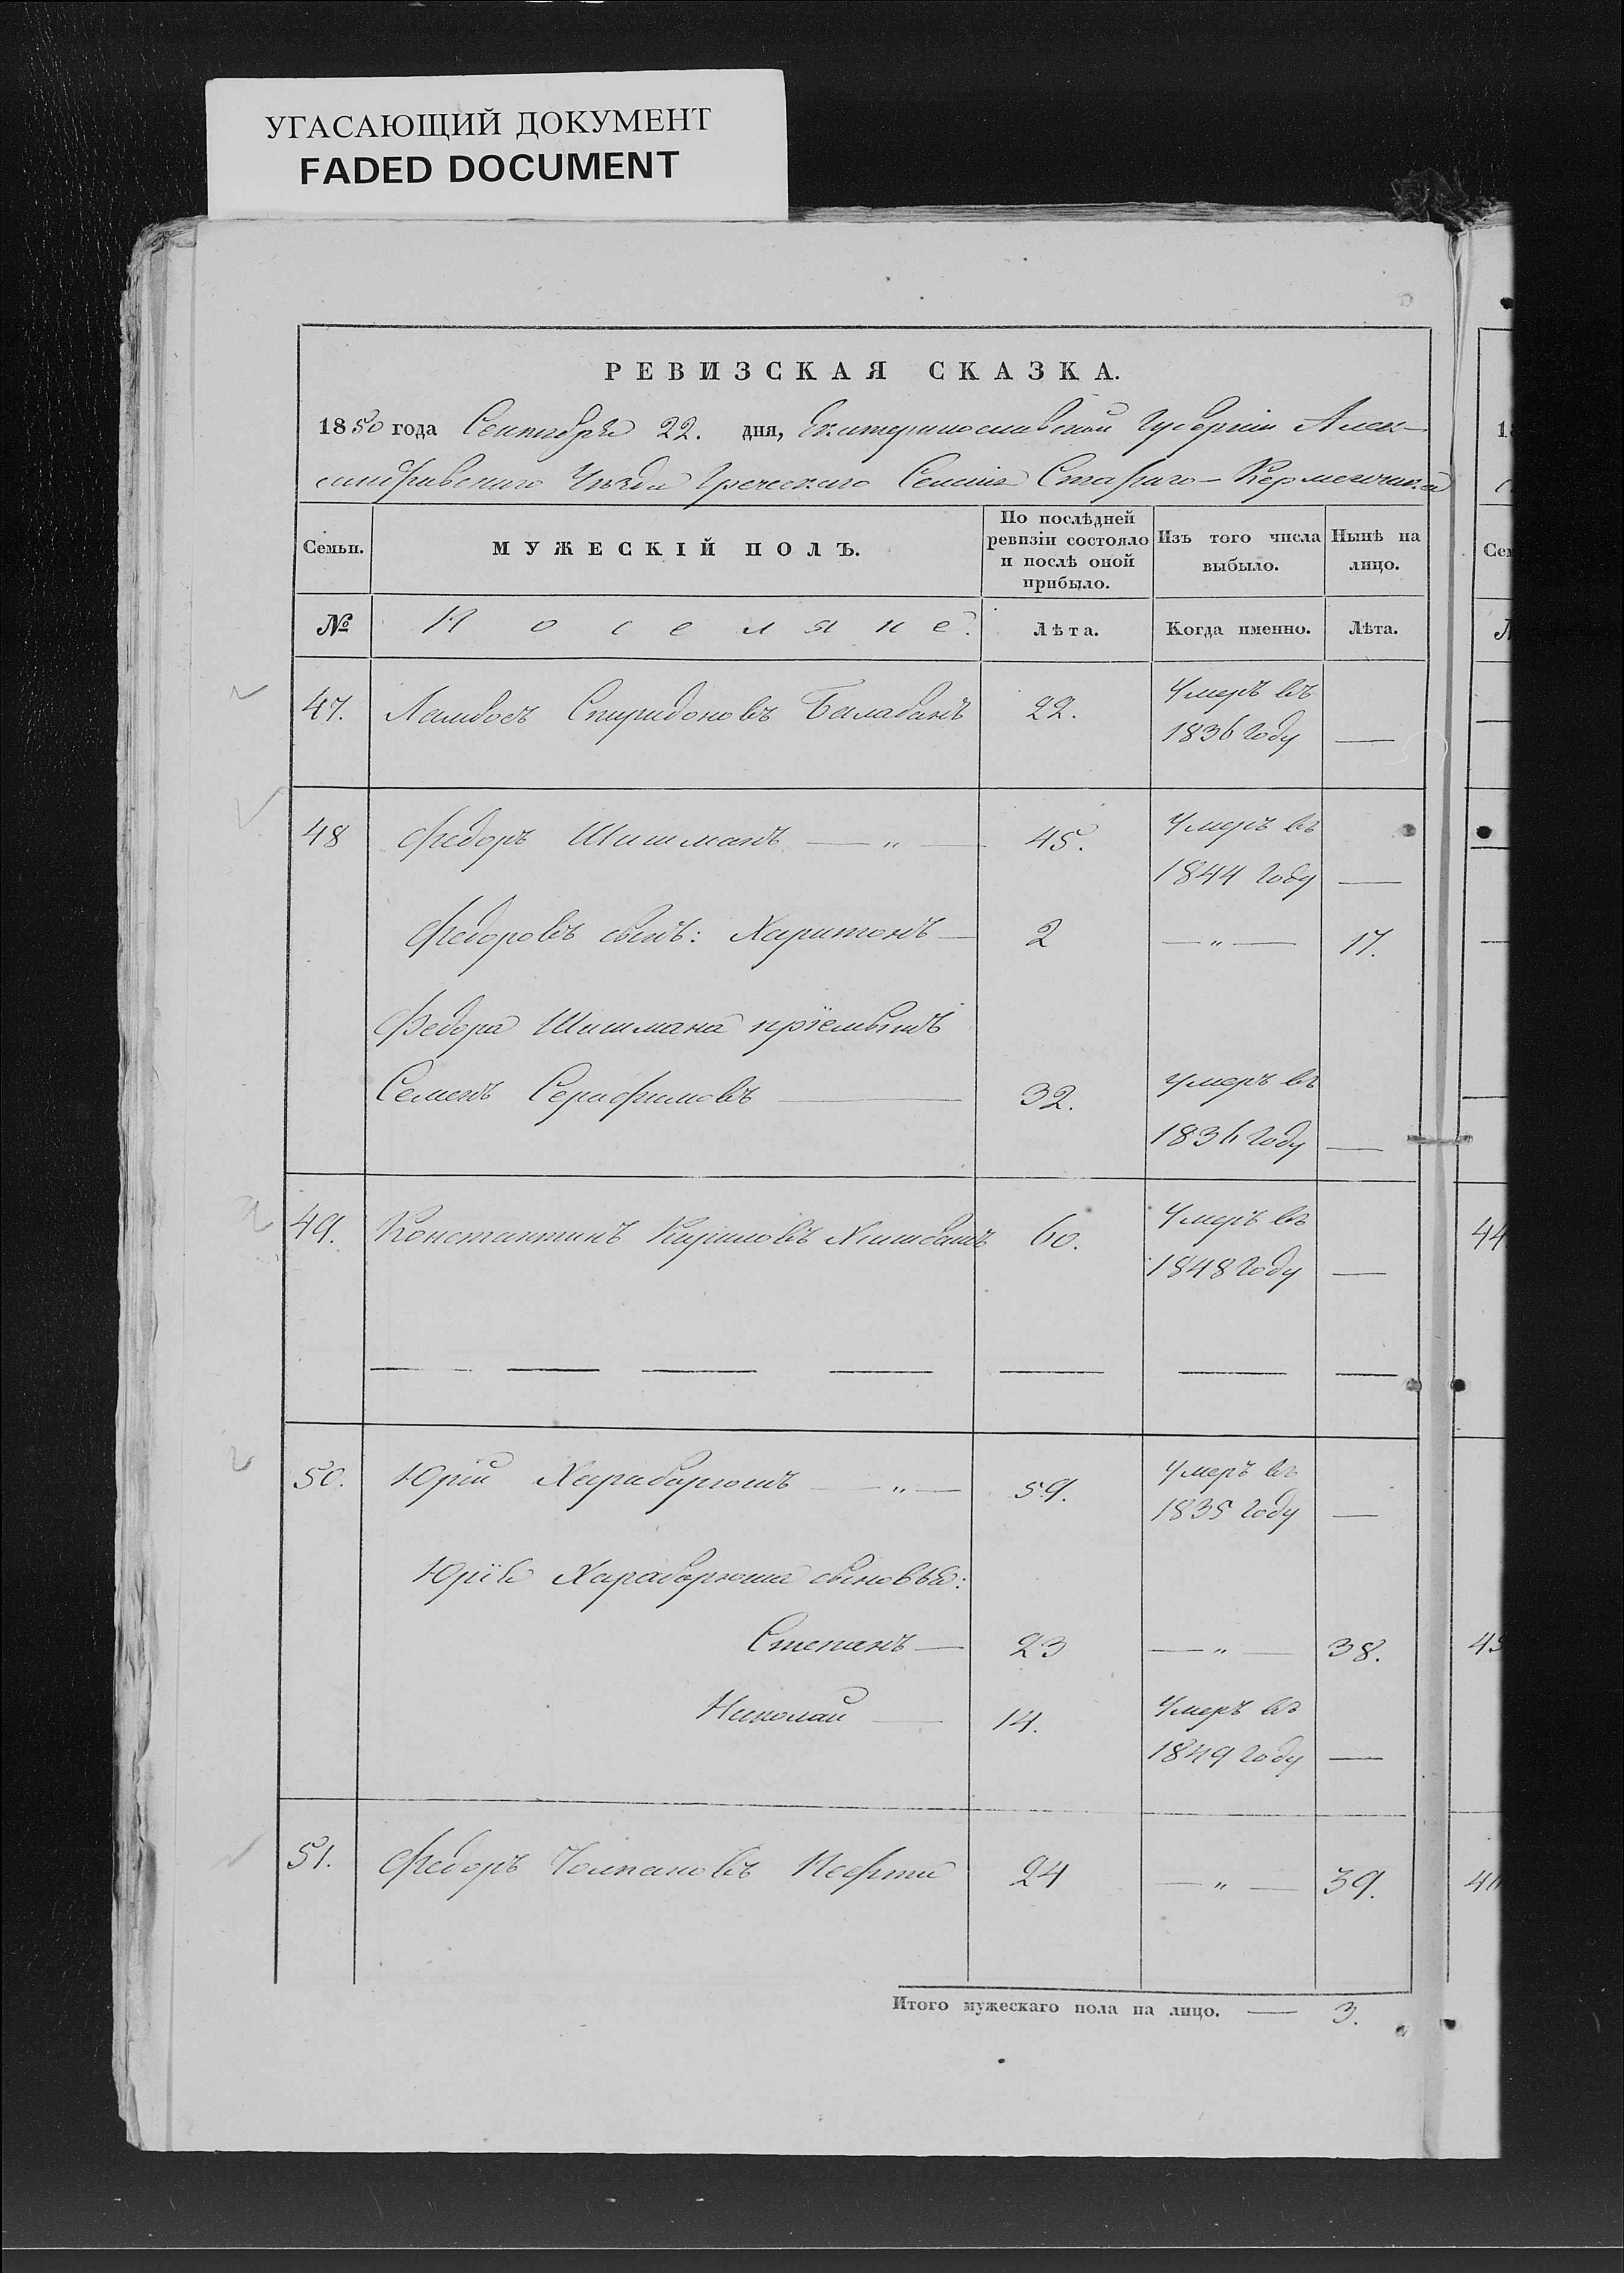 УГАСАЮЩИЙ ДОКУМЕНТ
FADED DOCUMENT
РЕВИЗСКАЯ СКАЗКА.
1850 года Сентября 22. дня, Екатеринославской Губерніи Алек-
сандровскаго Уѣзда Греческаго Селенія Стараго-Керменчика
Семьи. МУЖЕСКІЙ ПОЛЪ. По послѣдней ревизіи состояло и послѣ оной прибыло. Изъ того числа выбыло. Нынѣ на лицо.
№ Поселяне. Лѣта. Когда именно. Лѣта.
47. Ламбосъ Спиридоновъ Балабанъ 22. Умеръ въ
1836 году —
48 Федоръ Шишманъ — „ — 45. Умеръ въ
1844 году —
Федоровъ сынъ: Харитонъ — 2 — „ — 17.
Федора Шишмана пріемышъ
Семенъ Серафимовъ — 32. Умеръ въ
1836 году —
49. Константинъ Кириловъ 60. Умеръ въ
1848 году —
— — — — — — —
50. Юрій Харабарюшъ — „ — 59. Умеръ въ
1835 году —
Юрія Харабарюша сыновья:
Степанъ — 23 — „ — 38.
Николай — 14. Умеръ въ
1849 году —
51. Федоръ 24 — „ — 39.
Итого мужескаго пола на лицо. — 3.